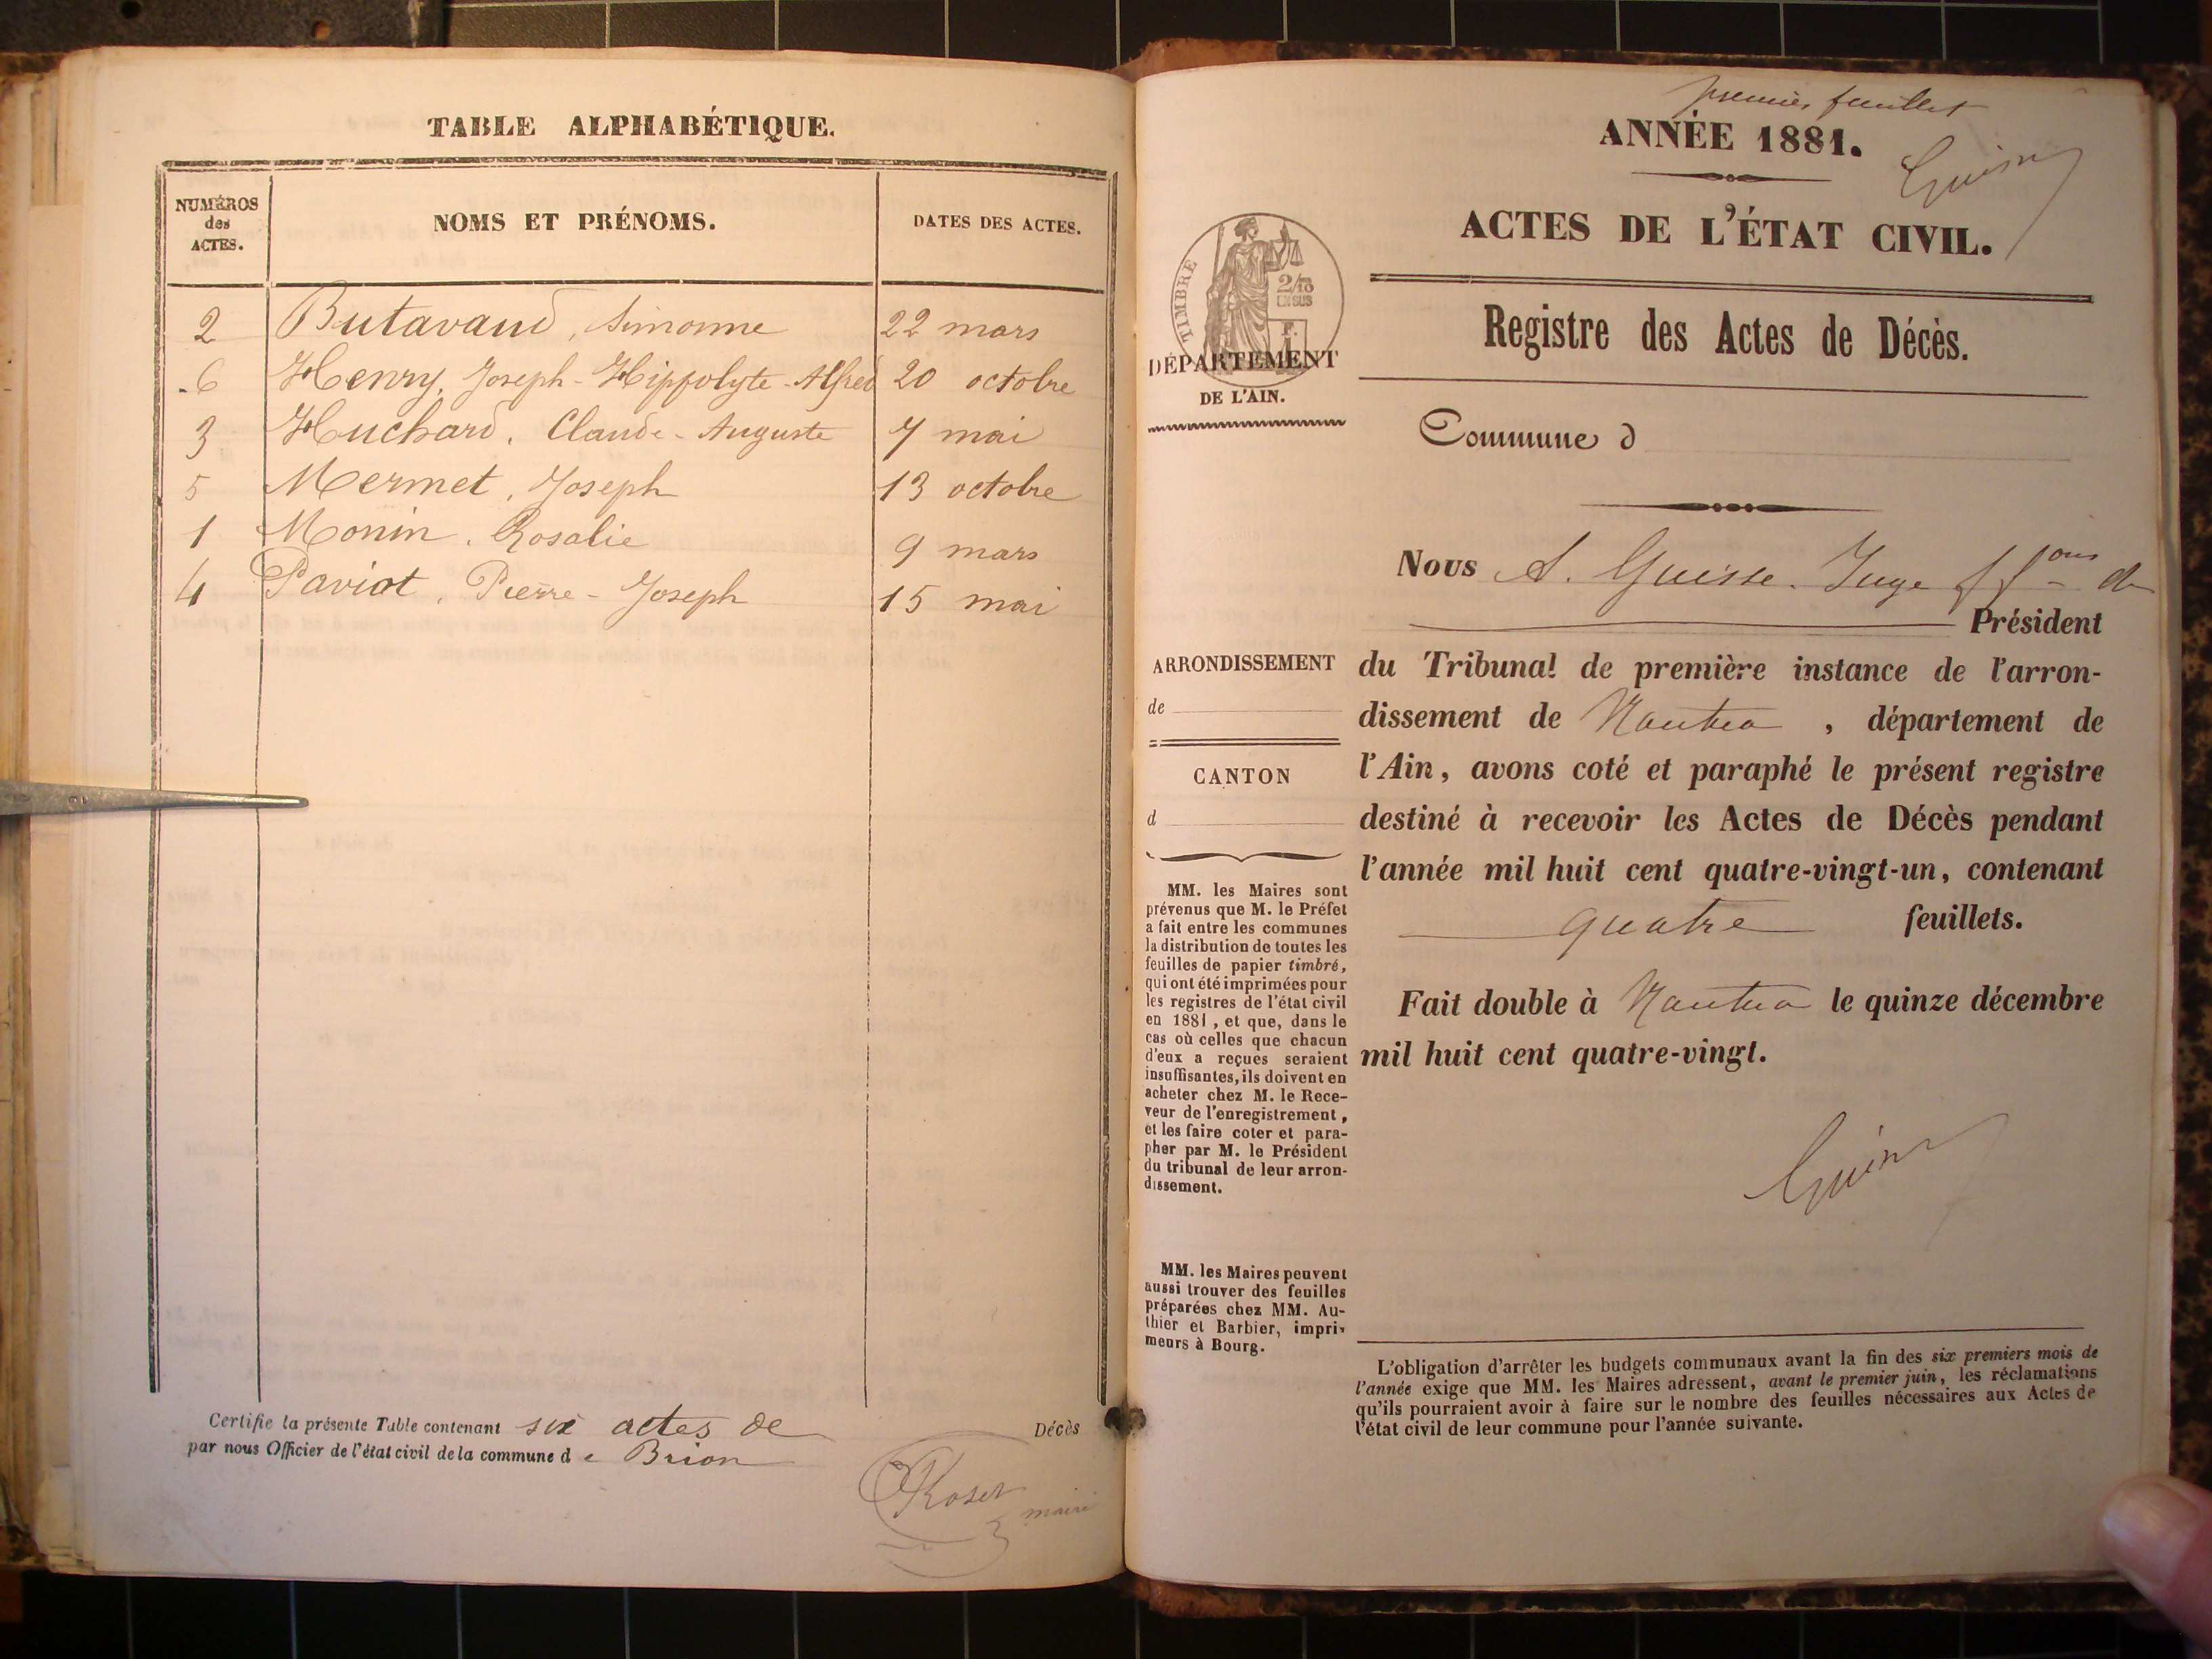 TABLE ALPHABÉTIQUE.
NUMÉROS
des
ACTES.
NOMS ET PRÉNOMS.
DATES DES ACTES.
2 Butavaud, Simonne 22 mars
6 Henry, Joseph-Hippolyte-Alfred 20 octobre
3 Huchard, Claude-Auguste 7 mai
5 Mermet, Joseph 13 octobre
1 Monin, Rosalie 9 mars
4 Paviot, Pierre-Joseph 15 mai
Certifie la présente Table contenant six actes de Décès
par nous Officier de l'état civil de la commune de Brion
maire
premier feuillet
ANNÉE 1881.
ACTES DE L'ÉTAT CIVIL.
TIMBRE
2/10
EN SUS
DÉPARTEMENT
DE L'AIN.
Registre des Actes de Décès.
Commune d
Nous A. Guisse. Juge ff ons de
Président
ARRONDISSEMENT
de
CANTON
d
du Tribunal de première instance de l'arron-
dissement de Nantua, département de
l'Ain, avons coté et paraphé le présent registre
destiné à recevoir les Actes de Décès pendant
l'année mil huit cent quatre-vingt-un, contenant
quatre feuillets.
Fait double à Nantua le quinze décembre
mil huit cent quatre-vingt.
MM. les Maires sont
prévenus que M. le Préfet
a fait entre les communes
la distribution de toutes les
feuilles de papier timbré,
qui ont été imprimées pour
les registres de l'état civil
en 1881, et que, dans le
cas où celles que chacun
d'eux a reçues seraient
insuffisantes, ils doivent en
acheter chez M. le Rece-
veur de l'enregistrement,
et les faire coter et para-
pher par M. le Président
du tribunal de leur arron-
dissement.
MM. les Maires peuvent
aussi trouver des feuilles
préparées chez MM. Au-
thier et Barbier, impri-
meurs à Bourg.
L'obligation d'arrêter les budgets communaux avant la fin des six premiers mois de
l'année exige que MM. les Maires adressent, avant le premier juin, les réclamations
qu'ils pourraient avoir à faire sur le nombre des feuilles nécessaires aux Actes de
l'état civil de leur commune pour l'année suivante.